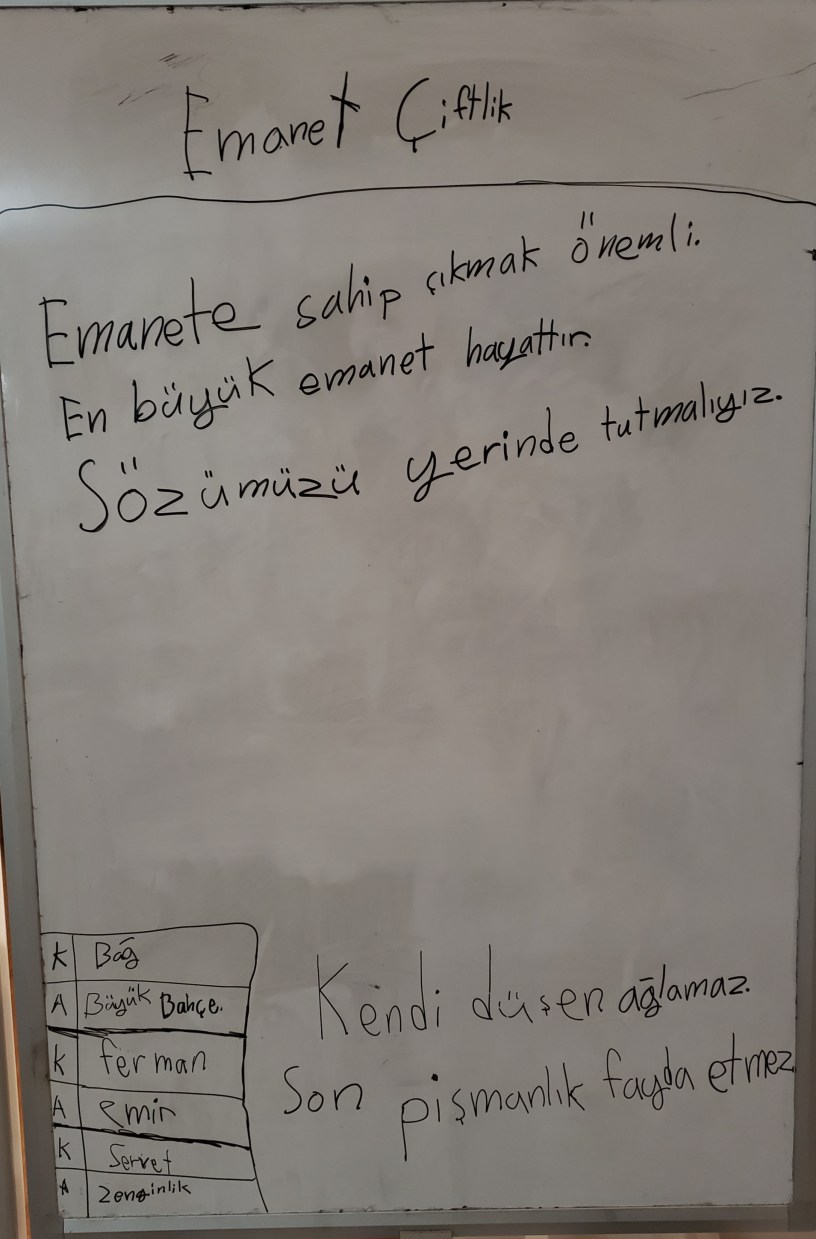 Emanet Çiftlik
Emanete sahip çıkmak önemli.
En büyük emanet hayattır.
Sözümüzü yerinde tutmalıyız.
K Bağ
A Büyük Bahçe.
K ferman
A emir
K Servet
A Zenginlik
Kendi düşen ağlamaz.
Son pişmanlık fayda etmez